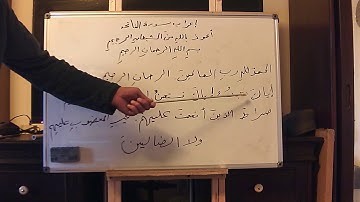 إعراب سورة الفاتحة
أعوذ بالله من الشيطان الرجيم
بسم الله الرحمان الرحيم
الحمد لله رب العالمين الرحمان الرحيم
إياك نعبد وإياك نستعين
صراط الذين أنعمت عليهم المغضوب عليهم
ولا الضالين